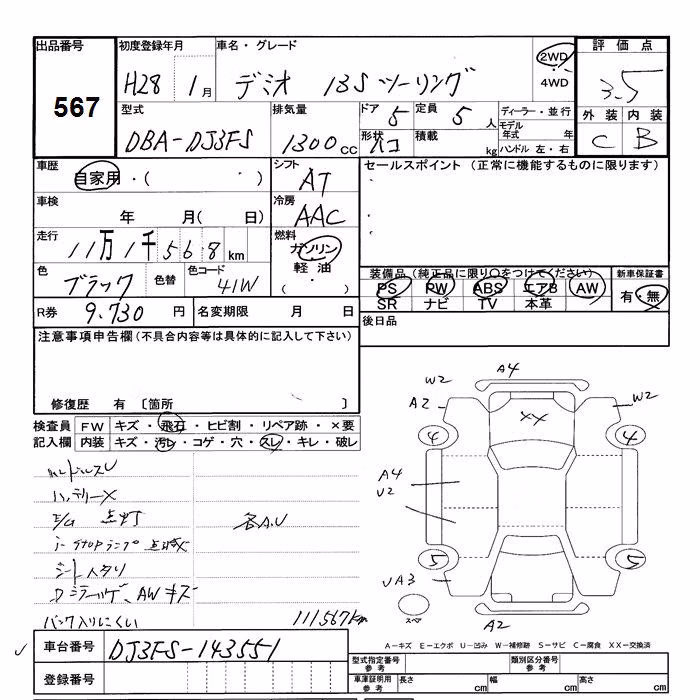 出品番号 初度登録年月 車名・グレード 2WD 評価点
567 H28 1月 デミオ 13Sツーリング 4WD 3.5
型式 排気量 ドア 5 定員 5人 ディーラー・並行 外装 内装
DBA-DJ3FS 1300cc 形状 積載 kg モデル年式 年 ハンドル 左・右 C B
車歴 自家用・( ) シフト AT セールスポイント (正常に機能するものに限ります)
車検 年 月( 日) 冷房 AAC
走行 11万1千568km 燃料 ガソリン 軽油 ( )
色 ブラック 色替 色コード 41W 装備品 (純正品に限り○をつけてください) 新車保証書
PS PW ABS エアB AW 有・無
SR ナビ TV 本革
R券 9.730円 名変期限 月 日 後日品
注意事項申告欄 (不具合内容等は具体的に記入して下さい)
修復歴 有 〔箇所 〕
検査員 FW キズ・飛石・ヒビ割・リペア跡・×要
記入欄 内装 キズ・汚レ・コゲ・穴・スレ・キレ・破レ
ハンドルスレ
バッテリー×
E/G 点灯 各A.U
シートヘタリ
AWキズ
バック入りにくい 111,567km
A4
W2 W2
A2 XX
4 4
A4
U2
5 5
UA3
スペア A2
A-キズ E-エクボ U-凹み W-補修跡 S-サビ C-腐食 XX-交換済
車台番号 DJ3FS-143551 型式指定番号 参考 類別区分番号 参考
登録番号 車庫証明用 参考 長さ cm 幅 cm 高さ cm